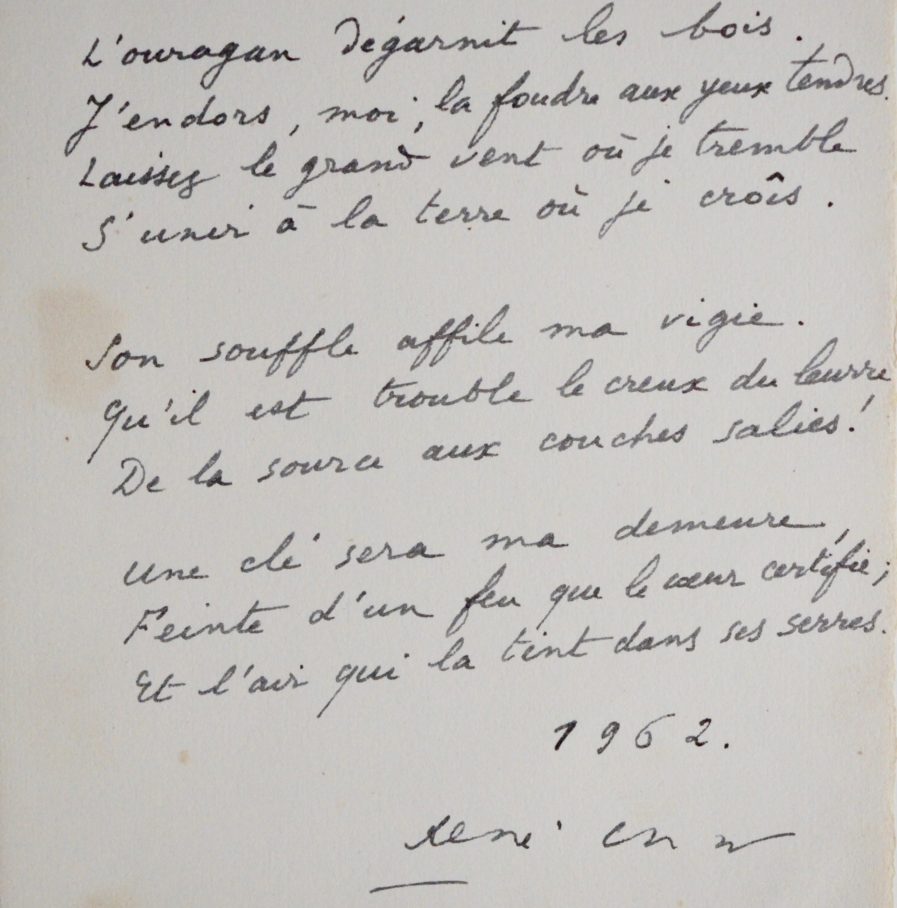 L'ouragan dégarnit les bois.
J'endors, moi, la foudre aux yeux tendres.
Laissez le grand vent où je tremble
S'unir à la terre où je croîs.
Son souffle affile ma vigie.
Qu'il est trouble le creux du leurre
De la source aux couches salies!
Une clé sera ma demeure,
Feinte d'un feu que le cœur certifie;
Et l'air qui la tint dans ses serres.
1962.
René Char